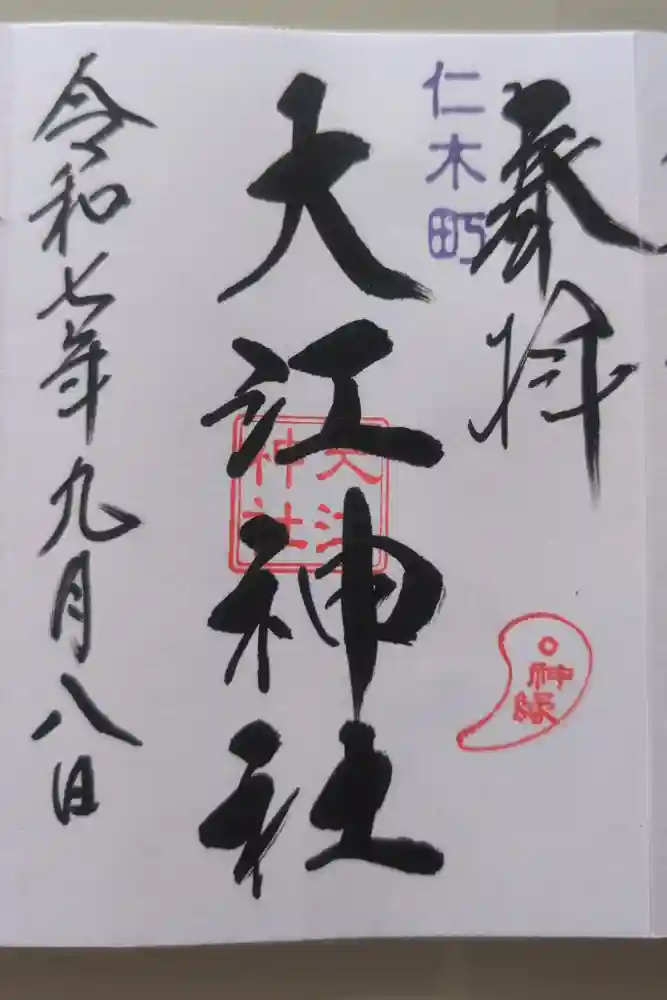 奉拝
仁木町
大江神社
大江
神社
神縁
令和七年九月八日